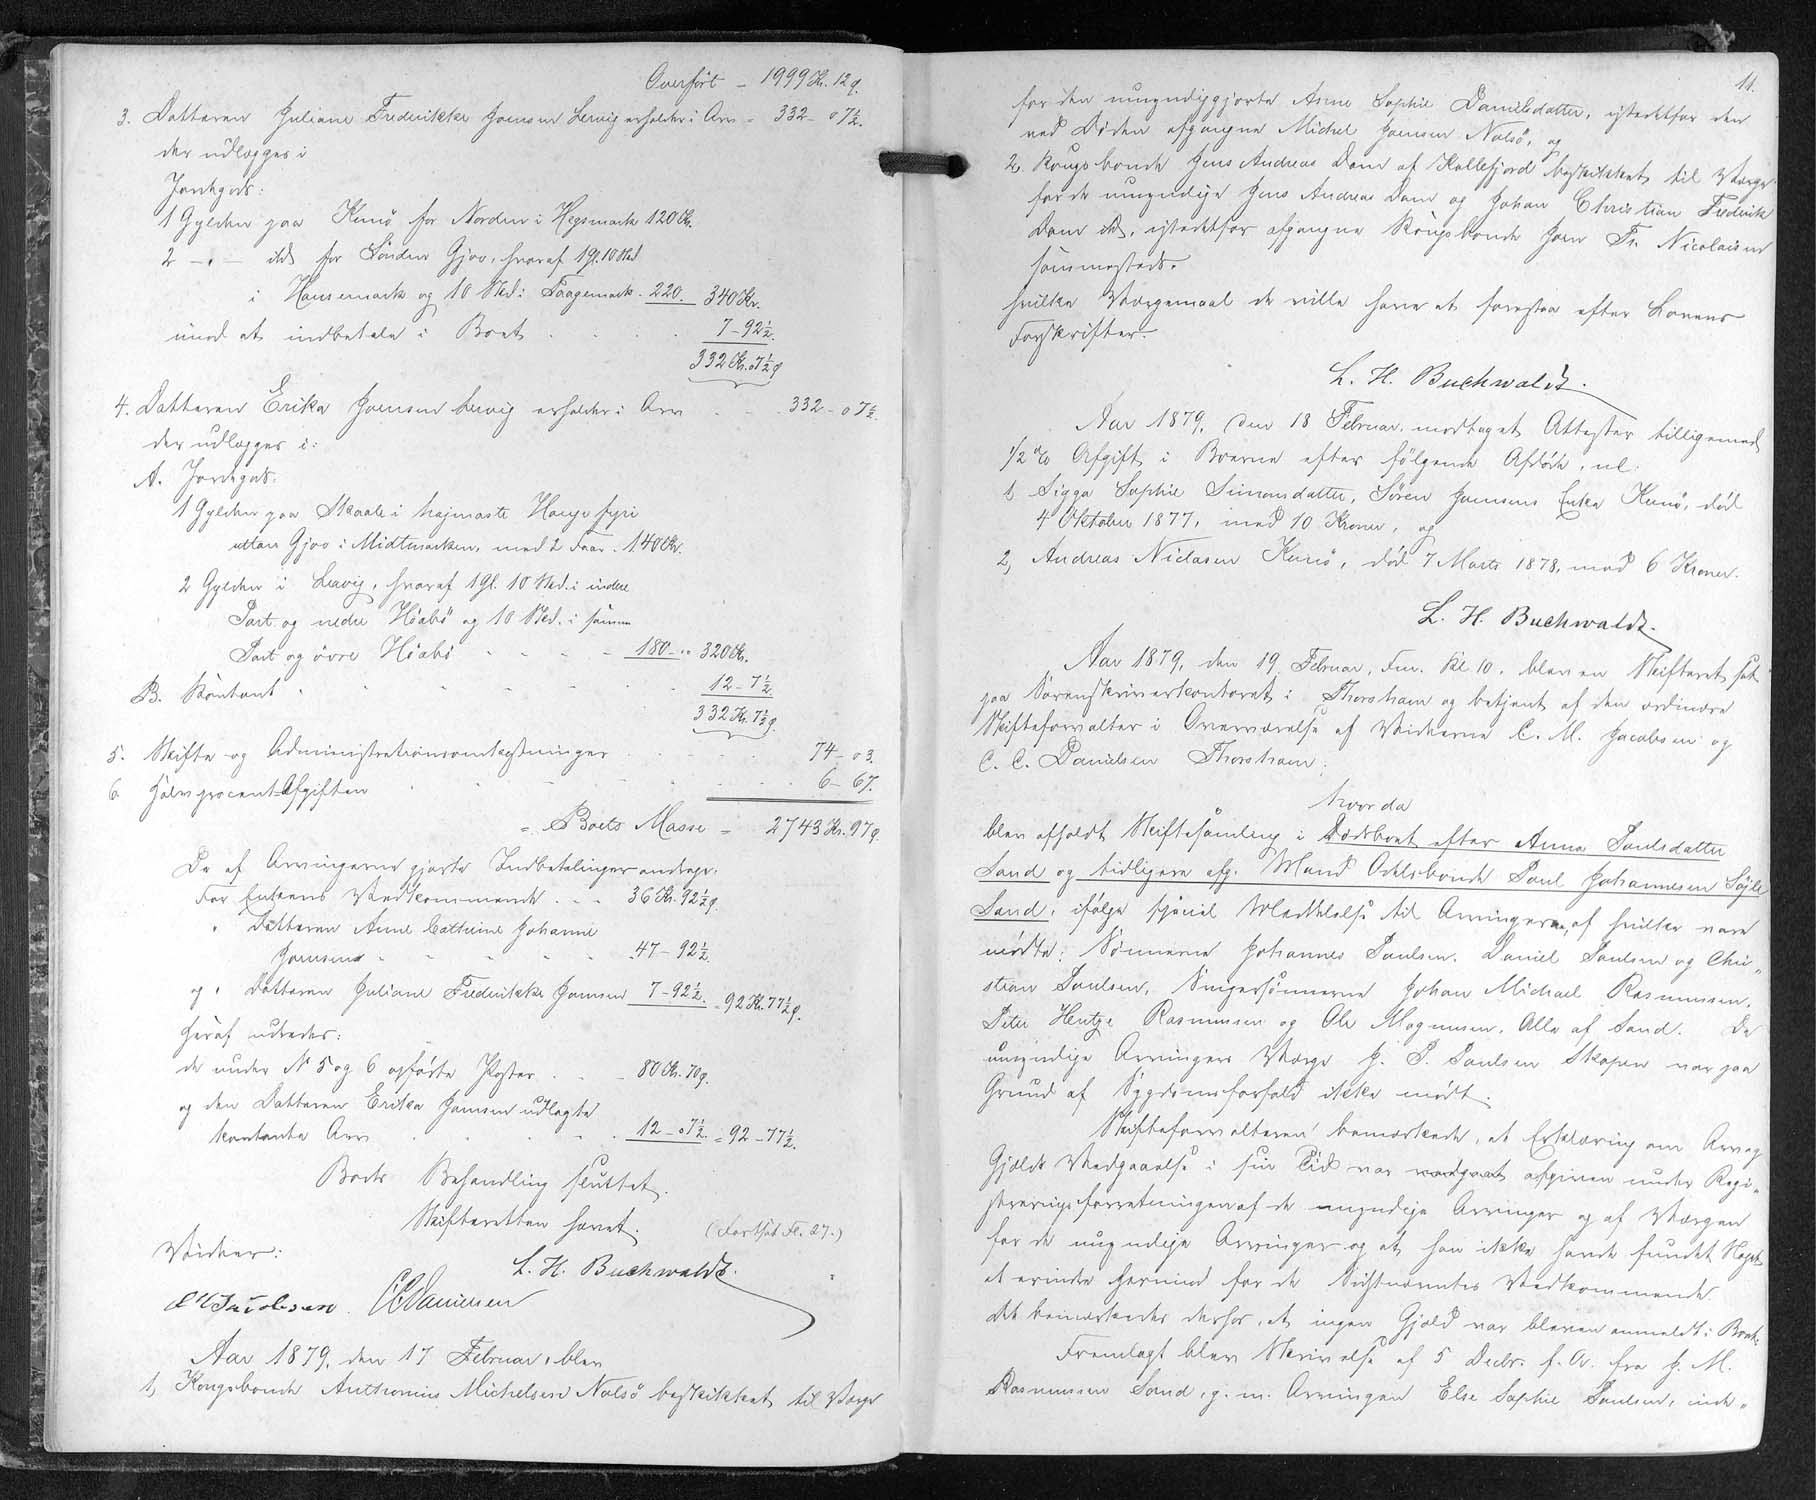 Overført - 1999 Kr. 12 ø.
3. Datteren Juliane Fredrikke Joensen Lervig erholder i Arv - 332 - 07½.
der udlægges i
Jordegods:
1 Gylden paa Kunø for Norden i Hegsmark 120 Kr.
2 -"- ibd for Sønden Gjov, hvoraf 1 gl. 10 Skd
i Hansemark og 10 Skd i Taagemark. 220. 340 Kr.
imod at indbetale i Boet . . . . 7 - 92½.
332 Kr. 07½ ø
4. Datteren Erika Joensen Lervig erholder i Arv . . . 332 - 07½.
der udlægges i:
A. Jordegods.
1 Gylden paa Skaale i højmaste Hauge fyri
uttan Gjov i Midtmarken, med 2 Faar. 140 Kr.
2 Gylden i Lervig, hvoraf 1 gl. 10 Skd. i indere
Part og nedre Høabø og 10 Skd. i samme
Part og øvre Høabø - - - - 180 - " 320 Kr.
B. Kontant . . . . . . . 12 - 7½.
332 Kr. 7½ ø.
5. Skifte- og Administrationsomkostninger . . . . 74 - 03.
6. Halvprocent-Afgiften . . . . . . 6 - 67.
= Boets Masse - 2743 Kr. 97 ø.
De af Arvingerne gjorte Indbetalinger andrage:
For Enkens Vedkommende . . . 36 Kr. 92½ ø.
" Datteren Anne Cathrine Johanne
Joensens - - - - - 47 - 92½.
og " Datteren Juliane Fredrikke Joensen 7 - 92½. = 92 Kr. 77½ ø.
heraf udredes:
de under No 5 og 6 opførte Poster . . . 80 Kr. 70 ø.
og den Datteren Erika Joensen udlagte
kontante Arv . . . . . 12 - 07½. = 92 - 77½.
Boets Behandling sluttet.
Skifteretten hævet. (Fortsat Fl. 27.)
Vidner: L. H. Buchwaldt.
C M Jacobsen. C C Danielsen
Aar 1879, den 17 Februar, blev
1, Kongsbonde Anthonius Michelsen Nolsø beskikket til Værge
11.
for den umyndiggjorte Anne Sophie Danielsdatter, istedetfor den
ved Døden afgangne Michel Joensen Nolsø, og
2, Kongsbonde Jens Andreas Dam af Kollefjord beskikket til Værge
for de umyndige Jens Andreas Dam og Johan Christian Fredrik
Dam ibd, istedetfor afgangne Kongsbonde Joen Fr. Nicolaisen
sammesteds.
hvilke Værgemaal de ville have at forestaa efter Lovens
Forskrifter.
L. H. Buchwaldt.
Aar 1879, den 18 Februar, modtaget Attester tilligemed
1/2 % Afgift i Boerne efter følgende Afdøde, nl.
1, Sigga Sophie Simonsdatter, Søren Joensens Enke Kunø, død
4 Oktober 1877, med 10 Kroner, og
2, Andreas Niclasen Kunø, død 7 Marts 1878, med 6 Kroner.
L. H. Buchwaldt.
Aar 1879, den 19 Februar, Fm. Kl 10, blev en Skifteret sat
paa Sorenskriverkontoret i Thorshavn og betjent af den ordinære
Skifteforvalter i Overværelse af Vidnerne C. M. Jacobsen og
C. C. Danielsen Thorshavn;
hvorda
blev afholdt Skiftesamling i Dødsboet efter Anna Poulsdatter
Sand og tidligere afg. Mand Odelsbonde Poul Johannesen Søjle
Sand, ifølge speciel Meddelelse til Arvingerne, af hvilke vare
mødte: Sønnerne Johannes Poulsen, Daniel Poulsen og Chri-
stian Poulsen, Svigersønnerne Johan Michael Rasmussen,
Peter Hentze Rasmussen og Ole Mognusen, Alle af Sand. De
umyndige Arvingers Værge J. P. Poulsen Skopen var paa
Grund af Sygdomsforfald ikke mødt.
Skifteforvalteren bemærkede, at Erklæring om Arv og
Gjælds Vedgaaelse i sin Tid var vedgaaet afgiven under Regi-
streringsforretningen af de myndige Arvinger og af Værgen
for de umyndige Arvinger og at han ikke havde fundet Noget
at erindre herimod for de Sidstnævntes Vedkommende
det bemærkedes derhos, at ingen Gjæld var bleven anmeldt i Boet.
Fremlagt blev Skrivelse af 5 Decbr. f. A. fra J. M.
Rasmussen Sand, g. m. Arvingen Else Sophie Poulsen, inde-